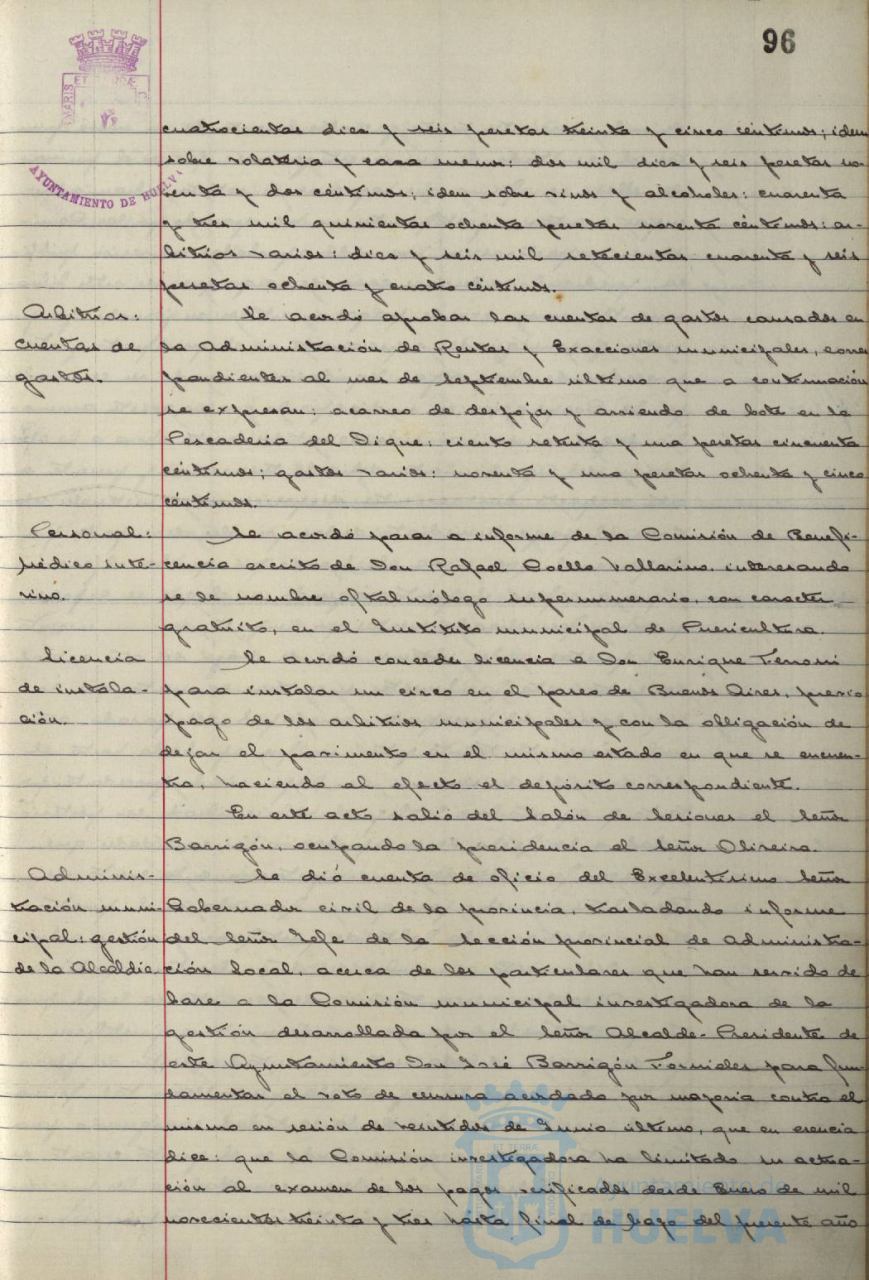 96
ET TERRÆ
MARIS
AYUNTAMIENTO DE HUELVA
cuatrocientas diez y seis pesetas treinta y cinco céntimos; idem
sobre volatería y caza menor: dos mil diez y seis pesetas no-
venta y dos céntimos; idem sobre vinos y alcoholes: cuarenta
y tres mil quinientas ochenta pesetas noventa céntimos: ar-
bitrios varios: diez y seis mil setecientas cuarenta y seis
pesetas ochenta y cuatro céntimos.
Arbitrios:
cuentas de
gastos.
Se acordó aprobar las cuentas de gastos causados en
la Administración de Rentas y Exacciones municipales, corres
pondientes al mes de Septiembre último que a continuación
se expresan: acarreo de despojos y arriendo de bote en la
Pescadería del Dique: ciento setenta y una pesetas cincuenta
céntimos; gastos varios: noventa y una pesetas ochenta y cinco
céntimos.
Personal:
médico inte-
rino.
Se acordó pasar a informe de la Comisión de Benefi-
cencia escrito de Don Rafael Coello Vallarino, interesando
se le nombre oftalmólogo supernumerario, con caracter
gratuito, en el Instituto municipal de Puericultura.
Licencia
de instala-
ción.
Se acordó conceder licencia a Don Enrique Ferroni
para instalar un circo en el paseo de Buenos Aires, previo
pago de los arbitrios municipales y con la obligación de
dejar el pavimento en el mismo estado en que se encuen-
tra, haciendo al efecto el depósito correspondiente.
En este acto salió del Salón de Sesiones el Señor
Barrigón, ocupando la presidencia el Señor Oliveira.
Adminis-
tración muni-
cipal: gestión
de la Alcaldía
Se dió cuenta de oficio del Excelentísimo Señor
Gobernador civil de la provincia, trasladando informe
del Señor Jefe de la Sección provincial de Administra-
ción local, acerca de los particulares que han servido de
base a la Comisión municipal investigadora de la
gestión desarrollada por el Señor Alcalde-Presidente de
este Ayuntamiento Don José Barrigón Fornieles para fun-
damentar el voto de censura acordado por mayoria contra el
mismo en sesión de veintidos de Junio último, que en esencia
dice: que la Comisión investigadora ha limitado su actua-
ción al examen de los pagos verificados desde Enero de mil
novecientos treinta y tres hasta final de Mayo del presente año
Ayuntamiento de
HUELVA